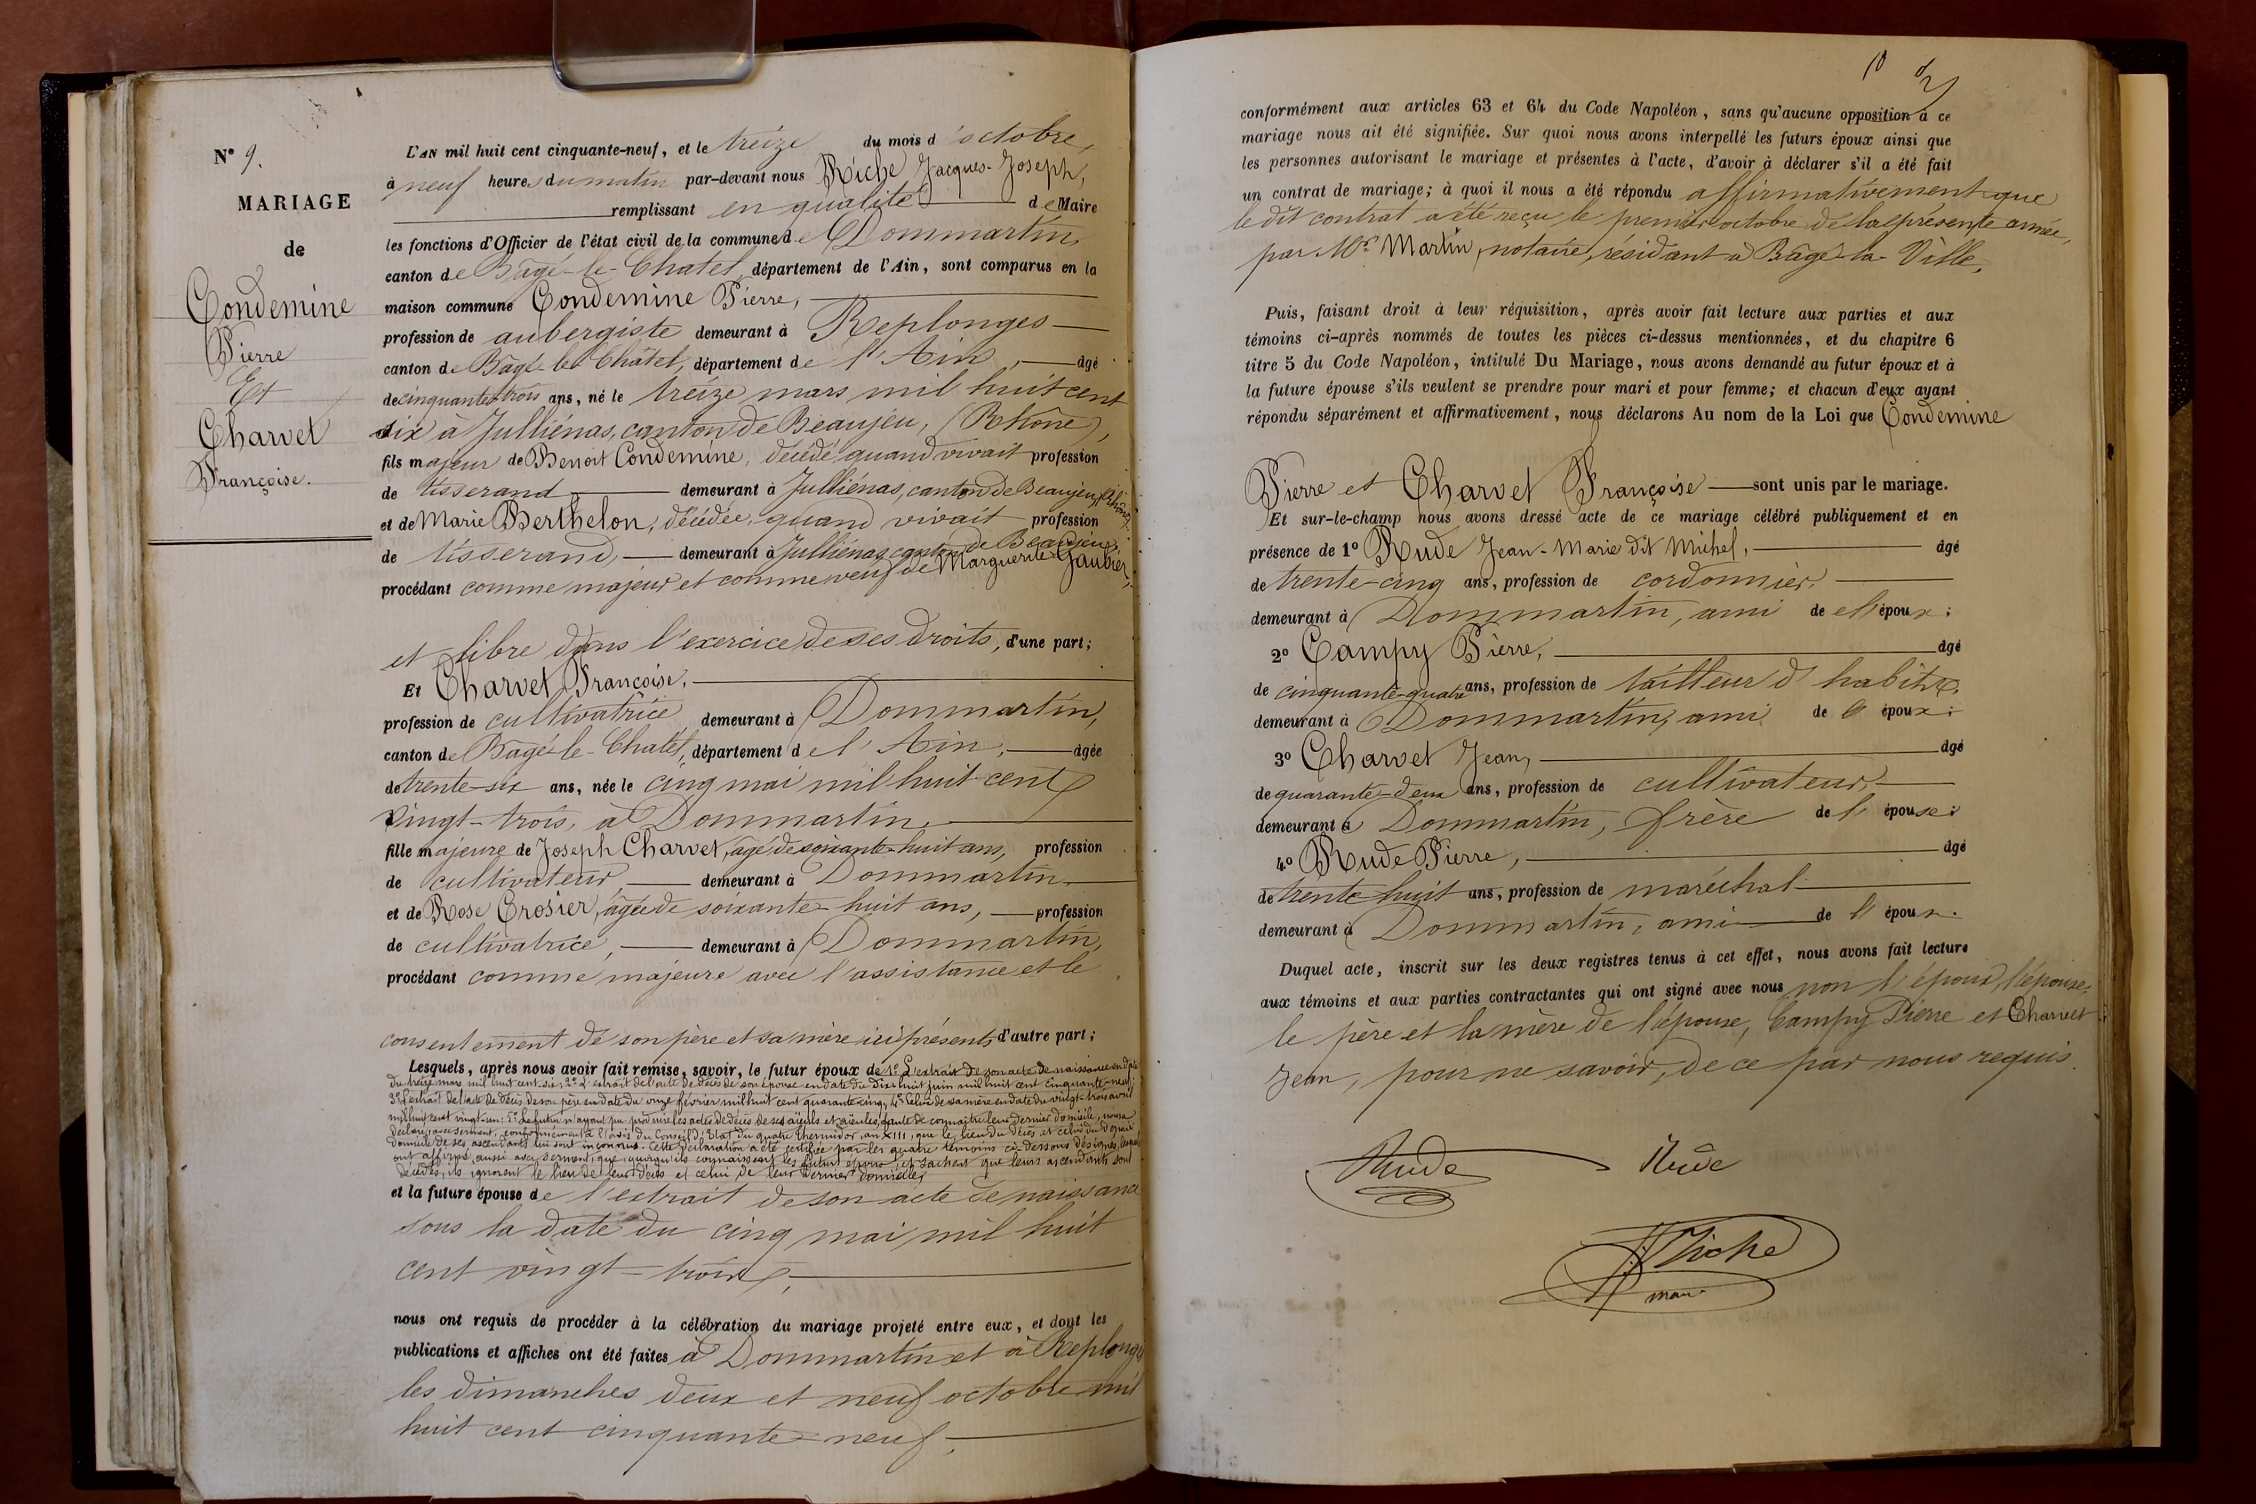 N° 9.
MARIAGE
de
Condemine
Pierre
Et
Charvet
Françoise.
L'AN mil huit cent cinquante-neuf, et le treize du mois d'octobre,
à neuf heures du matin par-devant nous Riche Jacques-Joseph,
remplissant en qualité de Maire
les fonctions d'Officier de l'état civil de la commune de Dommartin,
canton de Bâgé-le-Chatel, département de l'Ain, sont comparus en la
maison commune Condemine Pierre,
profession de aubergiste demeurant à Replonges
canton de Bâgé-le-Châtel, département de l'Ain, âgé
de cinquante-trois ans, né le treize mars mil huit cent
six à Julliénas, canton de Beaujeu, (Rhône),
fils majeur de Benoit Condemine, décédé quand vivait profession
de tisserand demeurant à Julliénas, canton de Beaujeu, (Rhône)
et de Marie Berthelon, décédée, quand vivait profession
de tisserand, demeurant à Julliénas, canton de Beaujeu,
procédant comme majeur et comme veuf de Marguerite Gaubier,
et libre dans l'exercice de ses droits, d'une part;
Et Charvet Françoise,
profession de cultivatrice demeurant à Dommartin,
canton de Bâgé-le-Chatel, département de l'Ain, âgée
de trente-six ans, née le cinq mai mil huit cent
vingt-trois, à Dommartin,
fille majeure de Joseph Charvet, âgé de soixante-huit ans, profession
de cultivateur, demeurant à Dommartin
et de Rose Crosier, âgée de soixante-huit ans, profession
de cultivatrice, demeurant à Dommartin,
procédant comme majeure avec l'assistance et le
consentement de son père et sa mère ici présents, d'autre part;
Lesquels, après nous avoir fait remise, savoir, le futur époux de 1° L'extrait de son acte de naissance en date
du treize mars mil huit cent six; 2° L'extrait de l'acte de décès de son épouse en date du dix-huit juin mil huit cent cinquante-neuf;
3° L'extrait de l'acte de décès de son père en date du onze février mil huit cent quarante-cinq; 4° Celui de sa mère en date du vingt-trois avril
mil huit cent vingt-un: 5° Le futur n'ayant pu produire les actes de décès de ses aïeuls et aïeules, faute de connaître leur dernier domicile, nous a
déclaré, avec serment, conformément à l'avis du Conseil d'Etat du quatre thermidor, an XIII, que le lieu du décès et celui du dernier
domicile de ses ascendants lui sont inconnus. Cette déclaration a été certifiée par les quatre témoins ci-dessous désignés, lesquels
ont affirmé, aussi avec serment, que, quoiqu'ils connaissent les futurs époux, et sachent que leurs ascendants sont
décédés, ils ignorent le lieu de leur décès et celui de leur dernier domicile;
et la future épouse de l'extrait de son acte de naissance
sous la date du cinq mai mil huit
cent vingt-trois,
nous ont requis de procéder à la célébration du mariage projeté entre eux, et dont les
publications et affiches ont été faites à Dommartin et à Replonges
les dimanches deux et neuf octobre mil
huit cent cinquante-neuf,
10
conformément aux articles 63 et 64 du Code Napoléon, sans qu'aucune opposition à ce
mariage nous ait été signifiée. Sur quoi nous avons interpellé les futurs époux ainsi que
les personnes autorisant le mariage et présentes à l'acte, d'avoir à déclarer s'il a été fait
un contrat de mariage; à quoi il nous a été répondu affirmativement que
le dit contrat a été reçu le premier octobre de la présente année,
par Me Martin, notaire, résidant à Bâgé-la-Ville,
Puis, faisant droit à leur réquisition, après avoir fait lecture aux parties et aux
témoins ci-après nommés de toutes les pièces ci-dessus mentionnées, et du chapitre 6
titre 5 du Code Napoléon, intitulé Du Mariage, nous avons demandé au futur époux et à
la future épouse s'ils veulent se prendre pour mari et pour femme; et chacun d'eux ayant
répondu séparément et affirmativement, nous déclarons Au nom de la Loi que Condemine
Pierre et Charvet Françoise sont unis par le mariage.
Et sur-le-champ nous avons dressé acte de ce mariage célébré publiquement et en
présence de 1° Rude Jean-Marie dit Michel, âgé
de trente-cinq ans, profession de cordonnier,
demeurant à Dommartin, ami de l'époux;
2° Campy Pierre, âgé
de cinquante-quatre ans, profession de tailleur d'habits,
demeurant à Dommartin, ami de l'époux;
3° Charvet Jean, âgé
de quarante-deux ans, profession de cultivateur,
demeurant à Dommartin, frère de l'épouse;
4° Rude Pierre, âgé
de trente-huit ans, profession de maréchal
demeurant à Dommartin, ami de l'époux.
Duquel acte, inscrit sur les deux registres tenus à cet effet, nous avons fait lecture
aux témoins et aux parties contractantes qui ont signé avec nous non l'époux, l'épouse,
le père et la mère de l'épouse, Campy Pierre et Charvet
Jean, pour ne savoir, de ce par nous requis.
Rude Rude
Riche
maire